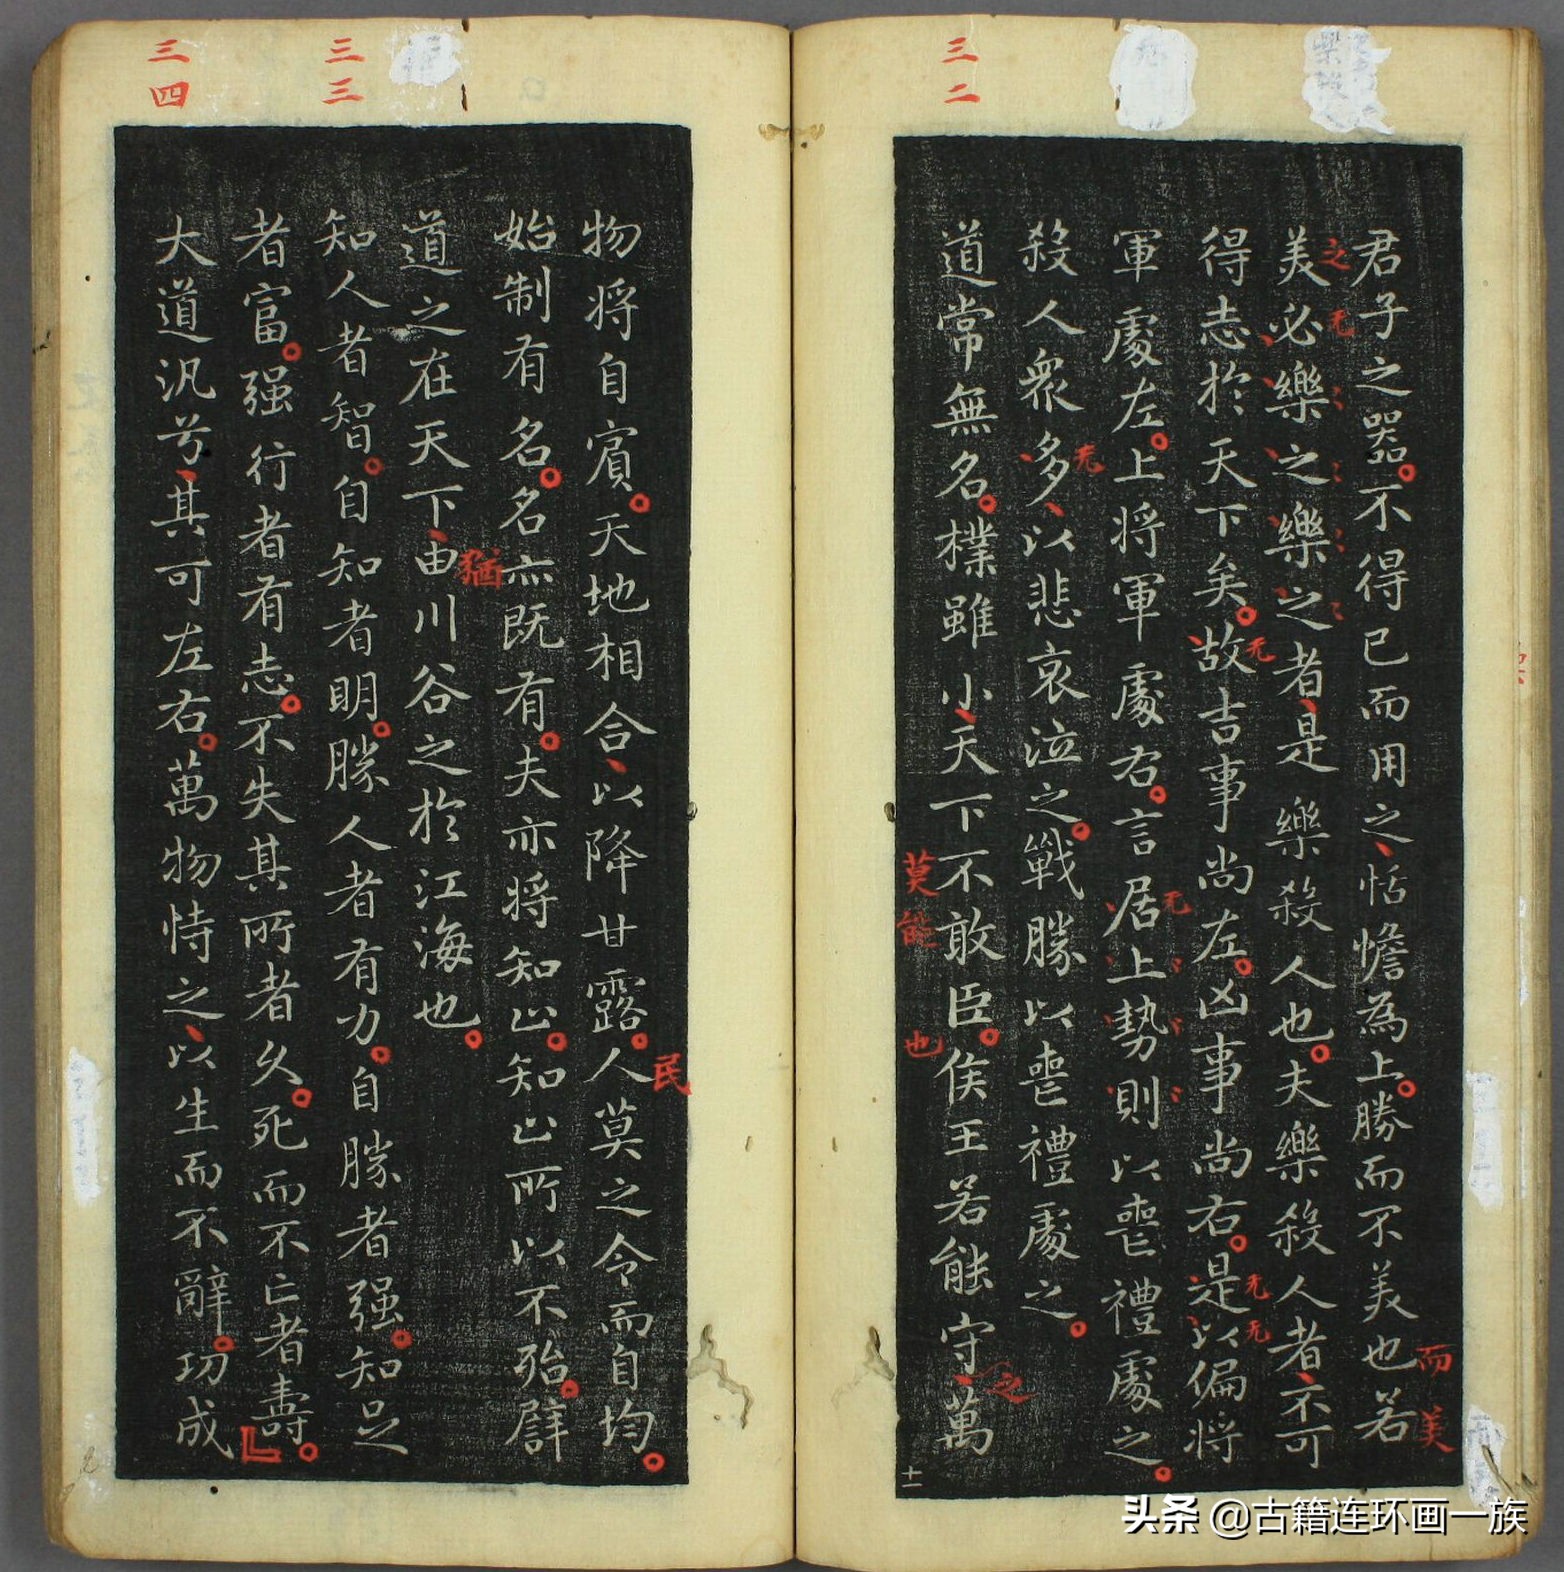 三二
君子之器不得已而用之恬憺為上勝而不美也若
美必樂之樂之者是樂殺人也夫樂殺人者不可
得志於天下矣故吉事尚左凶事尚右是以偏將
軍處左上將軍處右言居上勢則以喪禮處之
殺人衆多以悲哀泣之戰勝以喪禮處之
道常無名樸雖小天下不敢臣侯王若能守萬
而美
之无
无
无无
无
无
莫能也
之
十一
三三
三四
物將自賔天地相合以降甘露人莫之令而自均
始制有名名亦既有夫亦将知止知止所以不殆譬
道之在天下由川谷之於江海也
知人者智自知者明勝人者有力自勝者强知足
者富强行者有志不失其所者久死而不亡者壽
大道汎兮其可左右萬物恃之以生而不辭功成
民
猶
头条 @古籍连环画一族